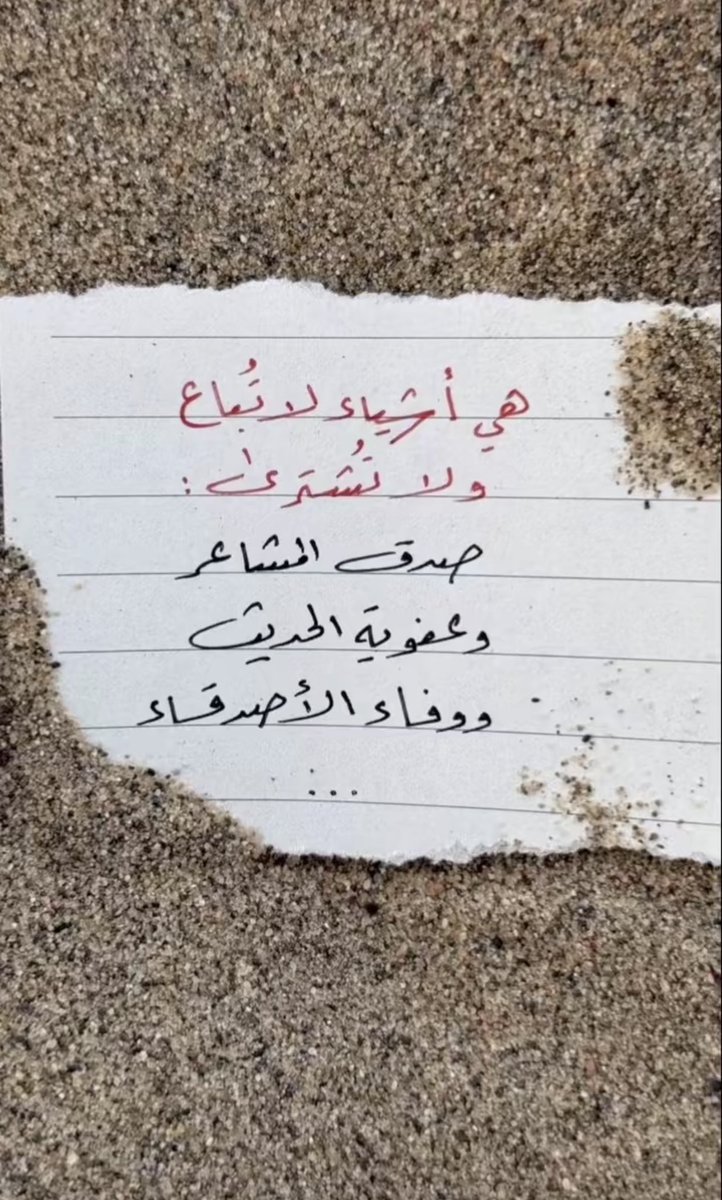 هي أشياء لا تُباع
ولا تُشترىٰ :
صدق المشاعر
وعفوية الحديث
ووفاء الأصدقاء
...